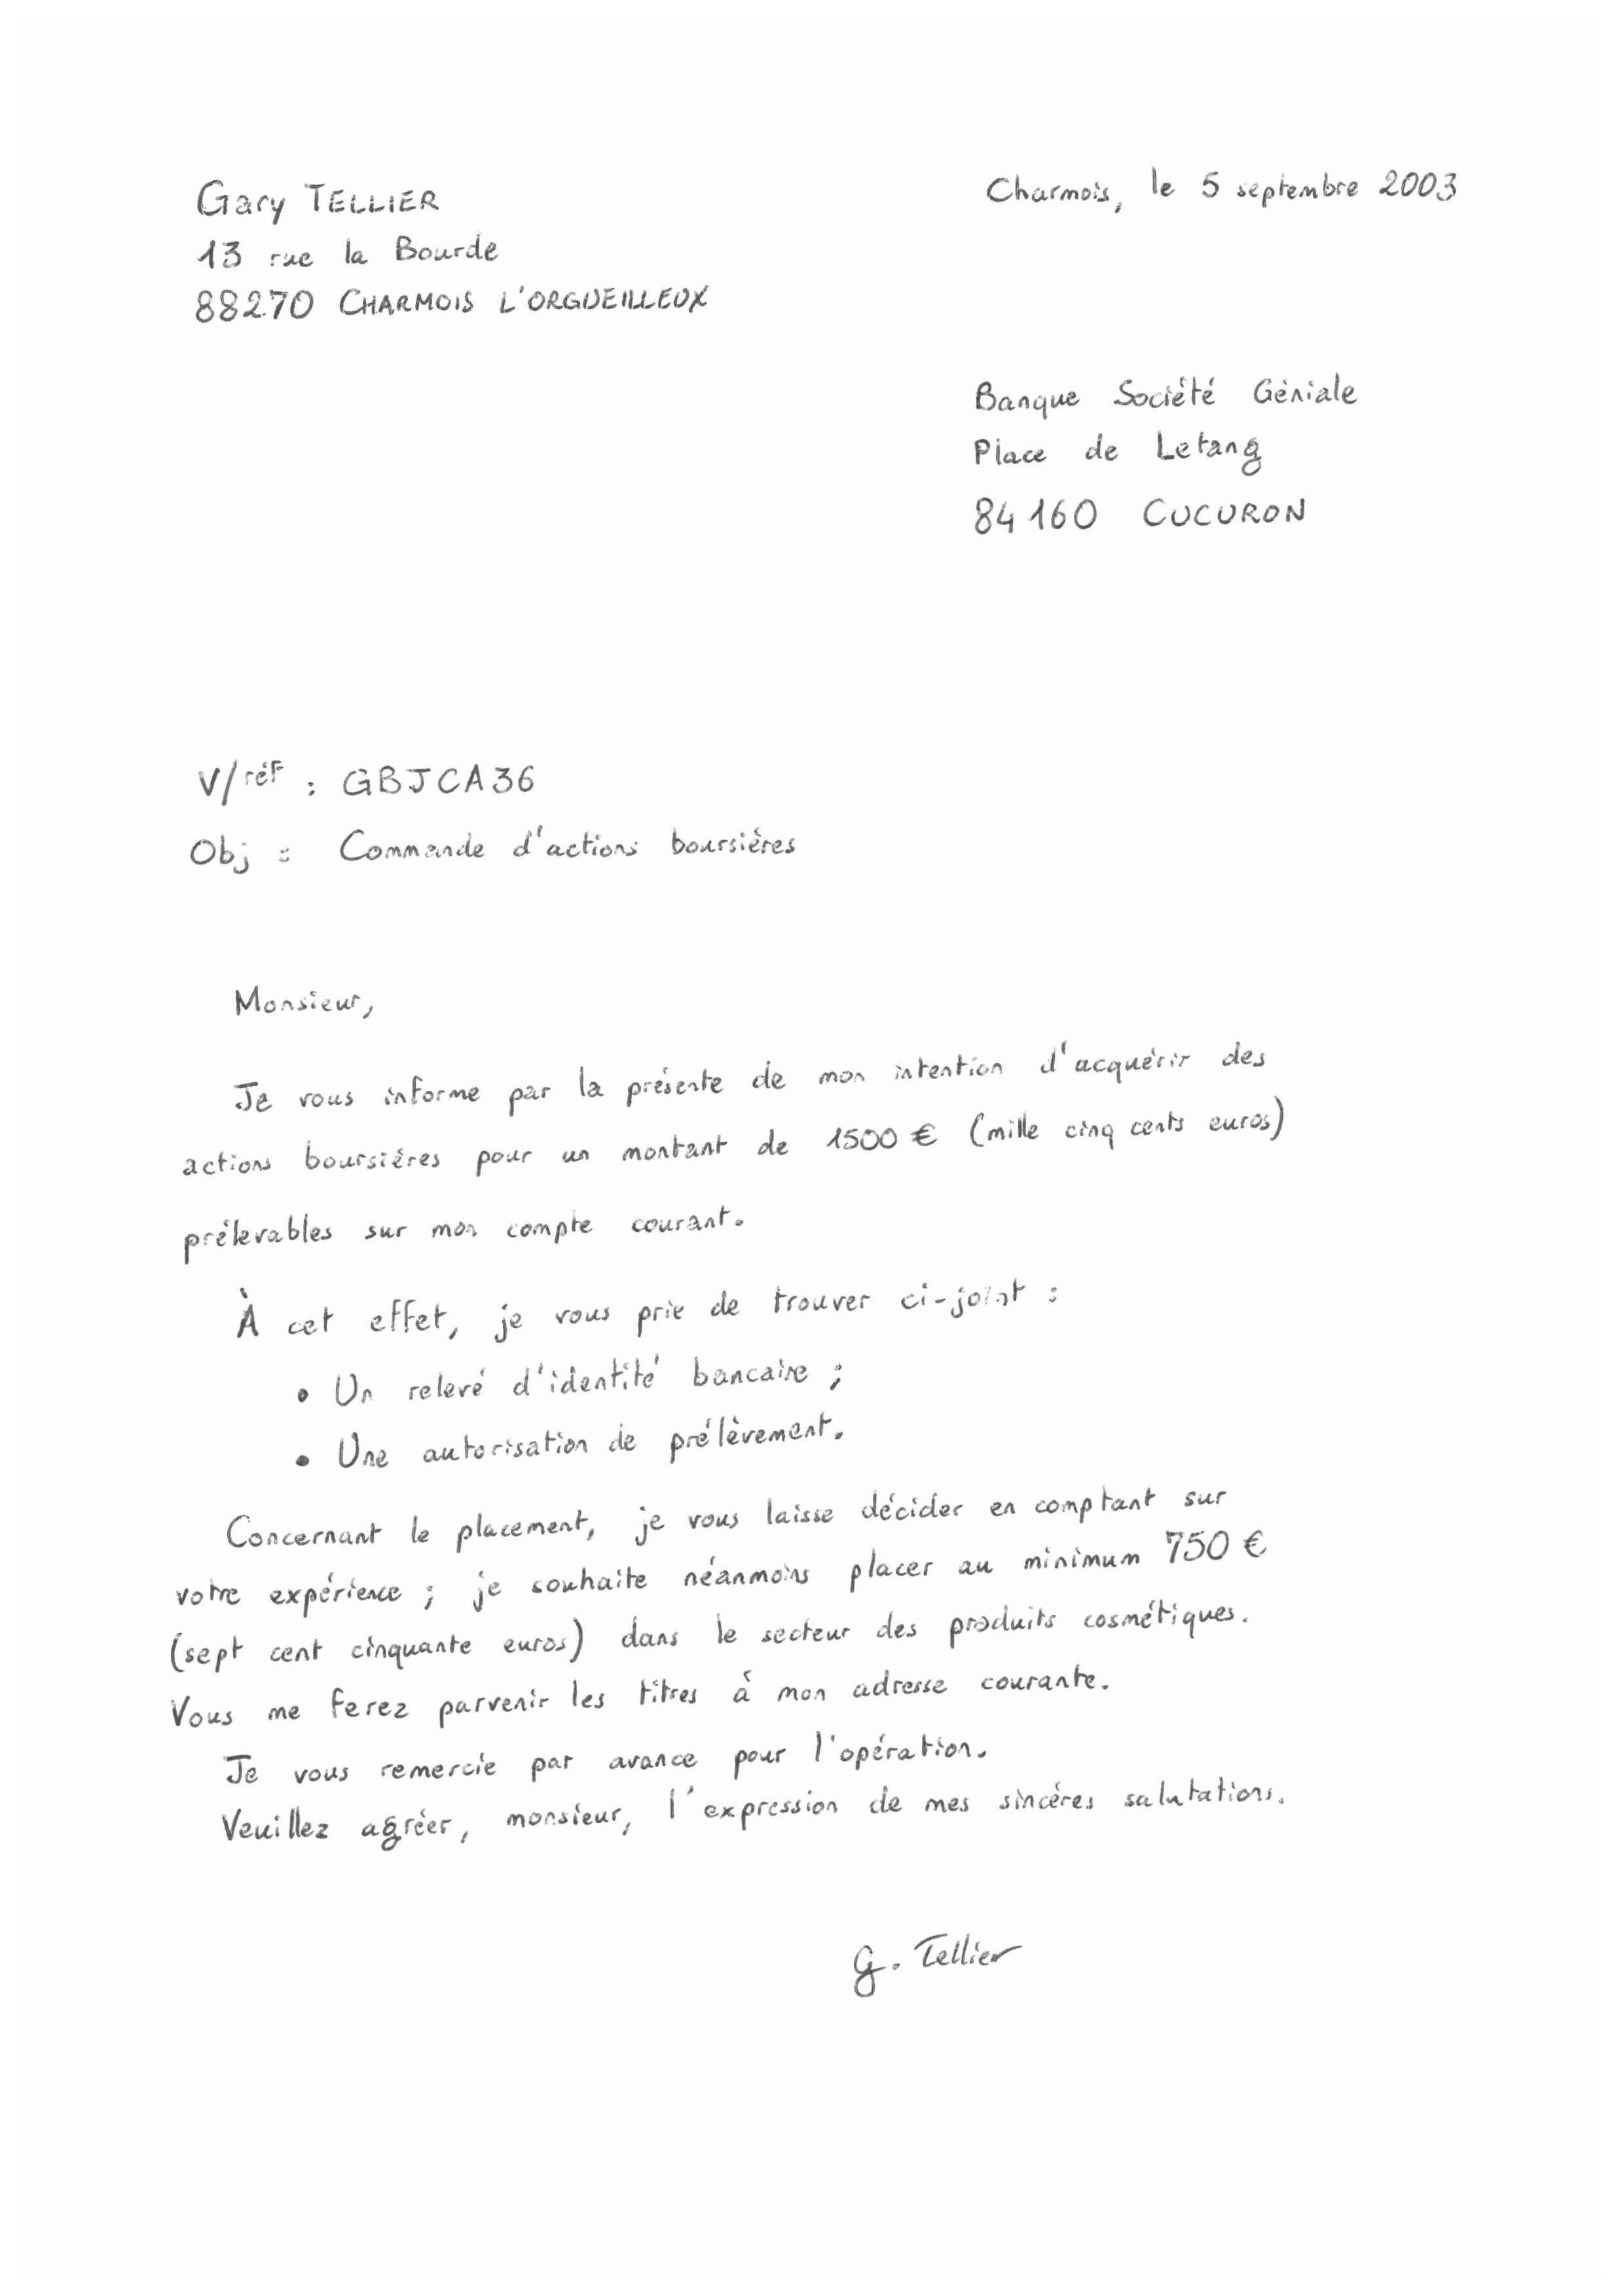 Gary TELLIER
13 rue la Bourde
88270 CHARMOIS L'ORGUEILLEUX
Charmois, le 5 septembre 2003
Banque Société Géniale
Place de Letang
84160 CUCURON
V/réf : GBJCA36
Obj : Commande d'actions boursières
Monsieur,
Je vous informe par la présente de mon intention d'acquérir des
actions boursières pour un montant de 1500 € (mille cinq cents euros)
prélevables sur mon compte courant.
À cet effet, je vous prie de trouver ci-joint :
• Un relevé d'identité bancaire ;
• Une autorisation de prélèvement.
Concernant le placement, je vous laisse décider en comptant sur
votre expérience ; je souhaite néanmoins placer au minimum 750 €
(sept cent cinquante euros) dans le secteur des produits cosmétiques.
Vous me ferez parvenir les titres à mon adresse courante.
Je vous remercie par avance pour l'opération.
Veuillez agréer, monsieur, l'expression de mes sincères salutations.
G. Tellier